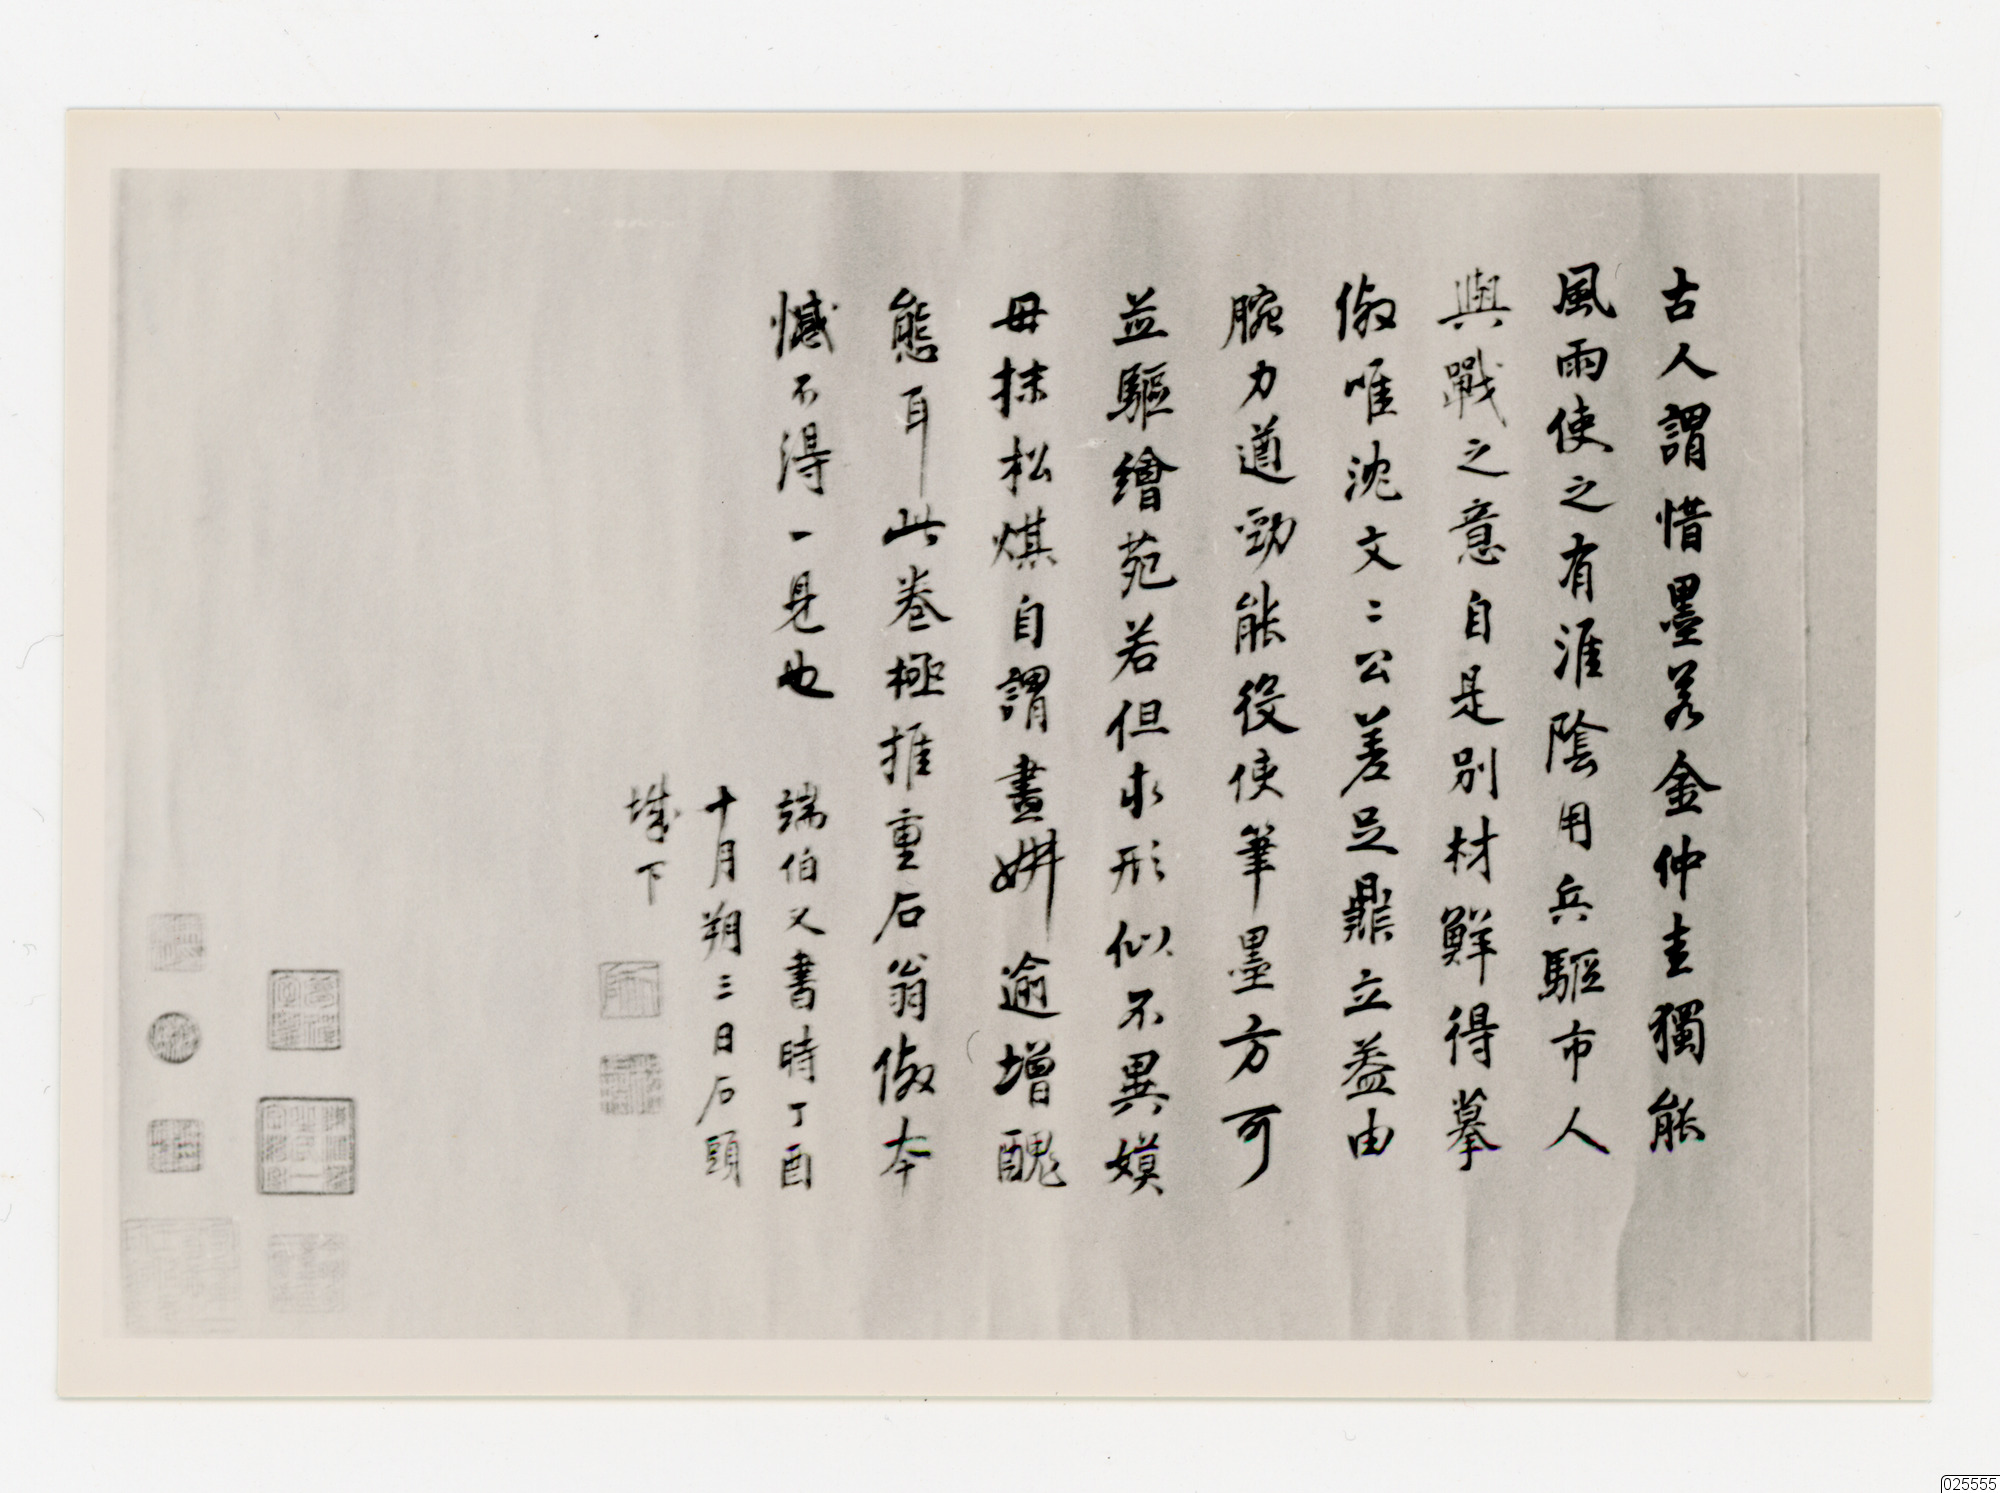 古人謂惜墨若金仲圭獨能
風雨使之有淮陰用兵驅市人
與戰之意自是別材鮮得摹
倣唯沈文二公差足鼎立蓋由
腕力遒勁能役使筆墨方可
並驅繪苑若但求形似不異嫫
母抹松煤自謂畫姘逾增醜
態耳此卷極推重石翁倣本
憾不得一見也
端伯又書時丁酉
十月朔三日石頭
城下
025555